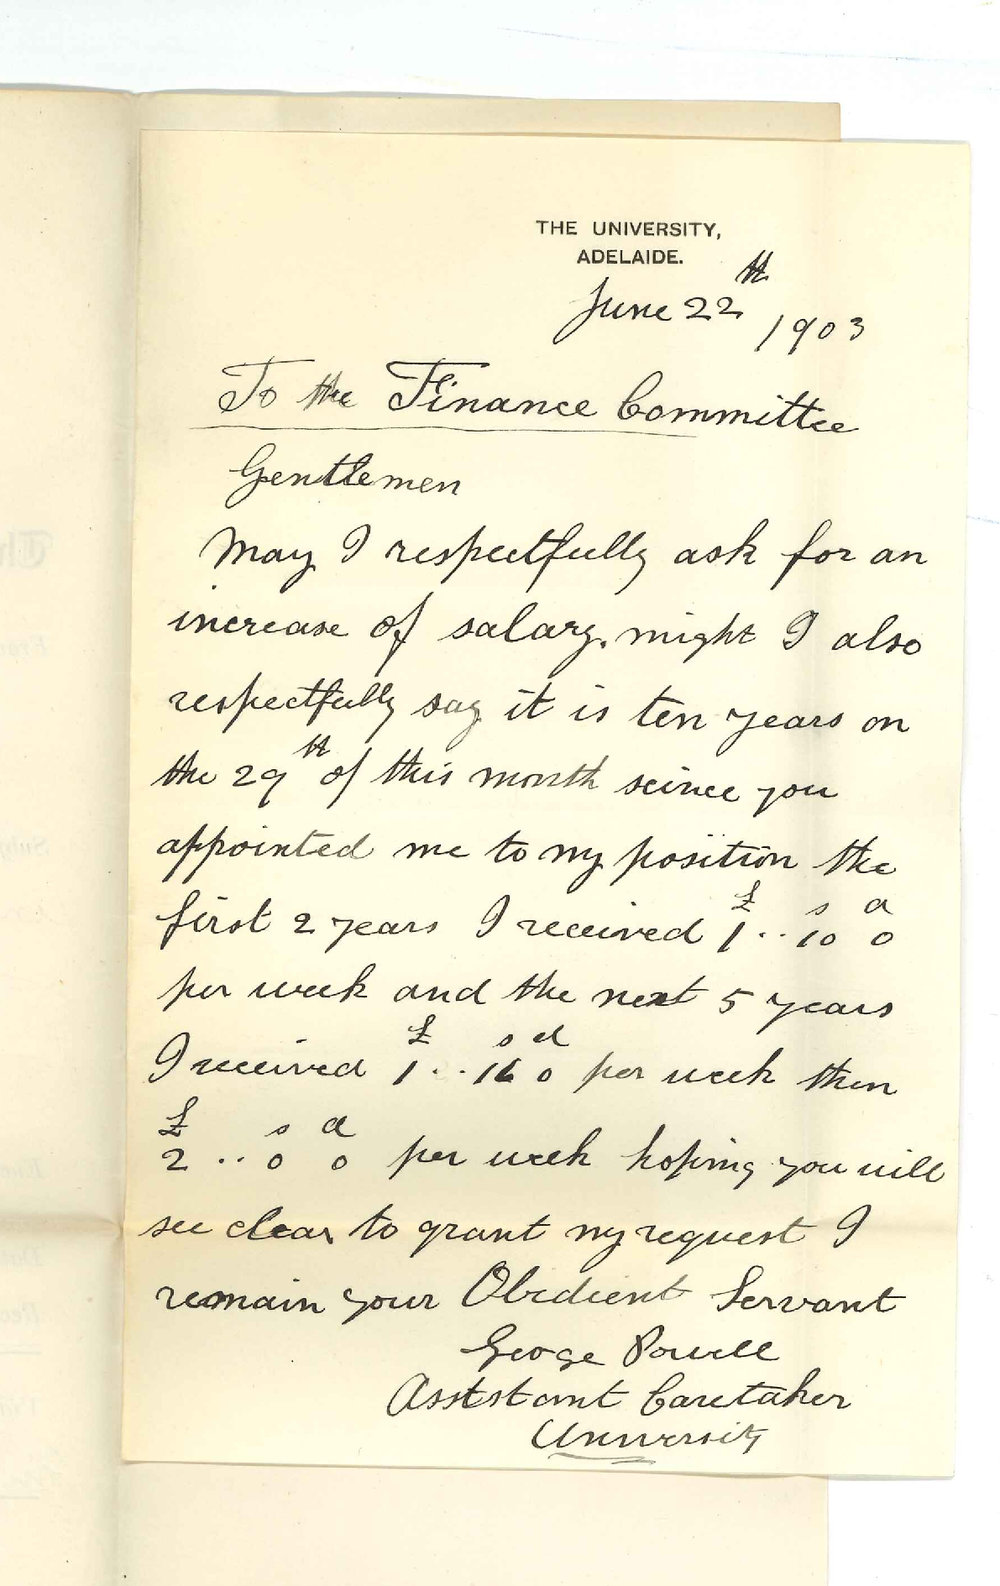 THE UNIVERSITY,
ADELAIDE.
June 22th 1903
To the Finance Committee
Gentlemen
May I respectfully ask for an
increase of salary. might I also
respectfully say it is ten years on
the 29th of this month seince you
appointed me to my position the
first 2 years I received £1..10s 0d
per week and the next 5 years
I received £1..16s 0d per week then
£2..0s 0d per week hoping you will
see clear to grant my request I
remain your Obedient Servant
George Powell
Asststant Caretaker
University